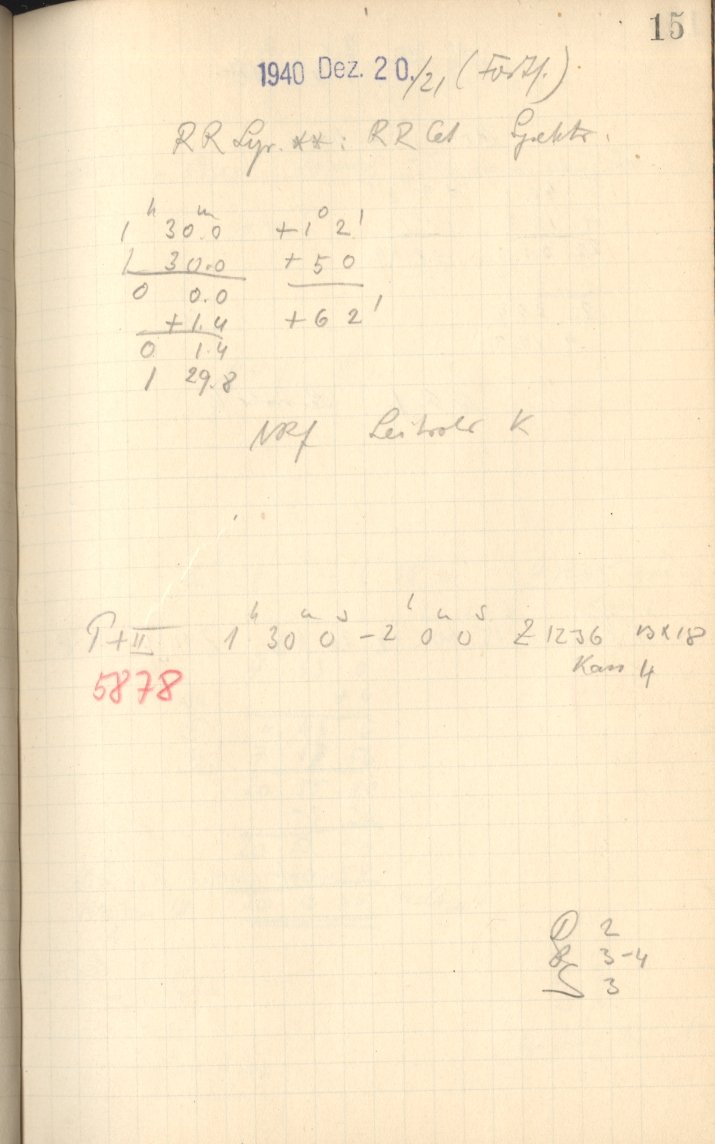 15
1940 Dez. 20./21 (Forts.).
RR Lyr. **: RR Cet Spektr.
1 h 30.0 m +1° 2'
1 30.0 +50
0 0.0
+1.4 +62'
0 1.4
1 29.8
Leitrohr K
T+II 1 h 30 m 0 s - 2 h 0 m 0 s Z 1236 13x18
Kass 4
5878
D 2
3-4
3